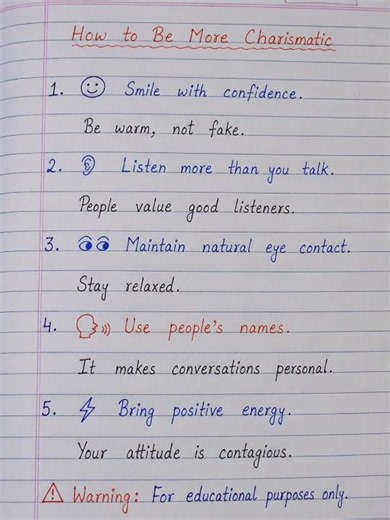 How to Be More Charismatic
1. Smile with confidence.
Be warm, not fake.
2. Listen more than you talk.
People value good listeners.
3. Maintain natural eye contact.
Stay relaxed.
4. Use people's names.
It makes conversations personal.
5. Bring positive energy.
Your attitude is contagious.
Warning: For educational purposes only.